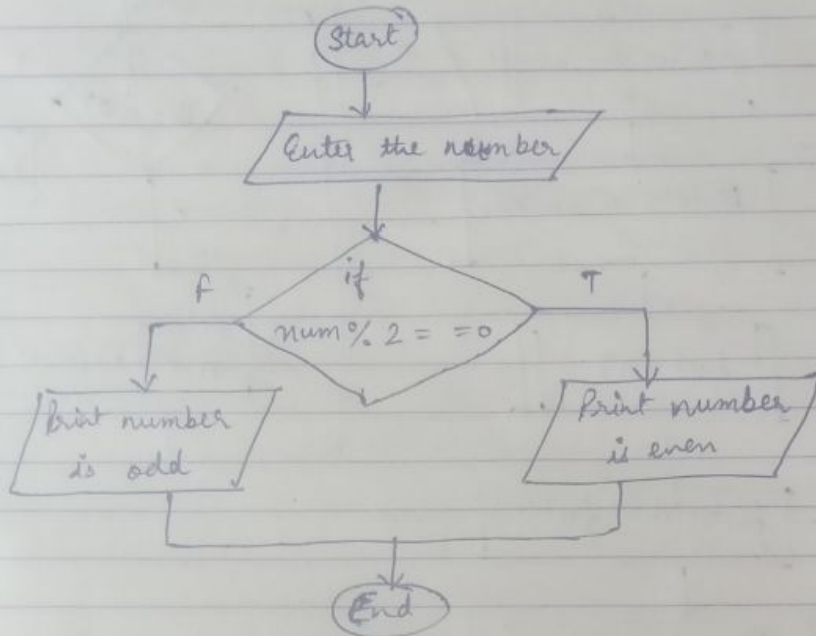 Start
Enter the number
F
if
T
num % 2 = = 0
Print number
is odd
Print number
is even
End